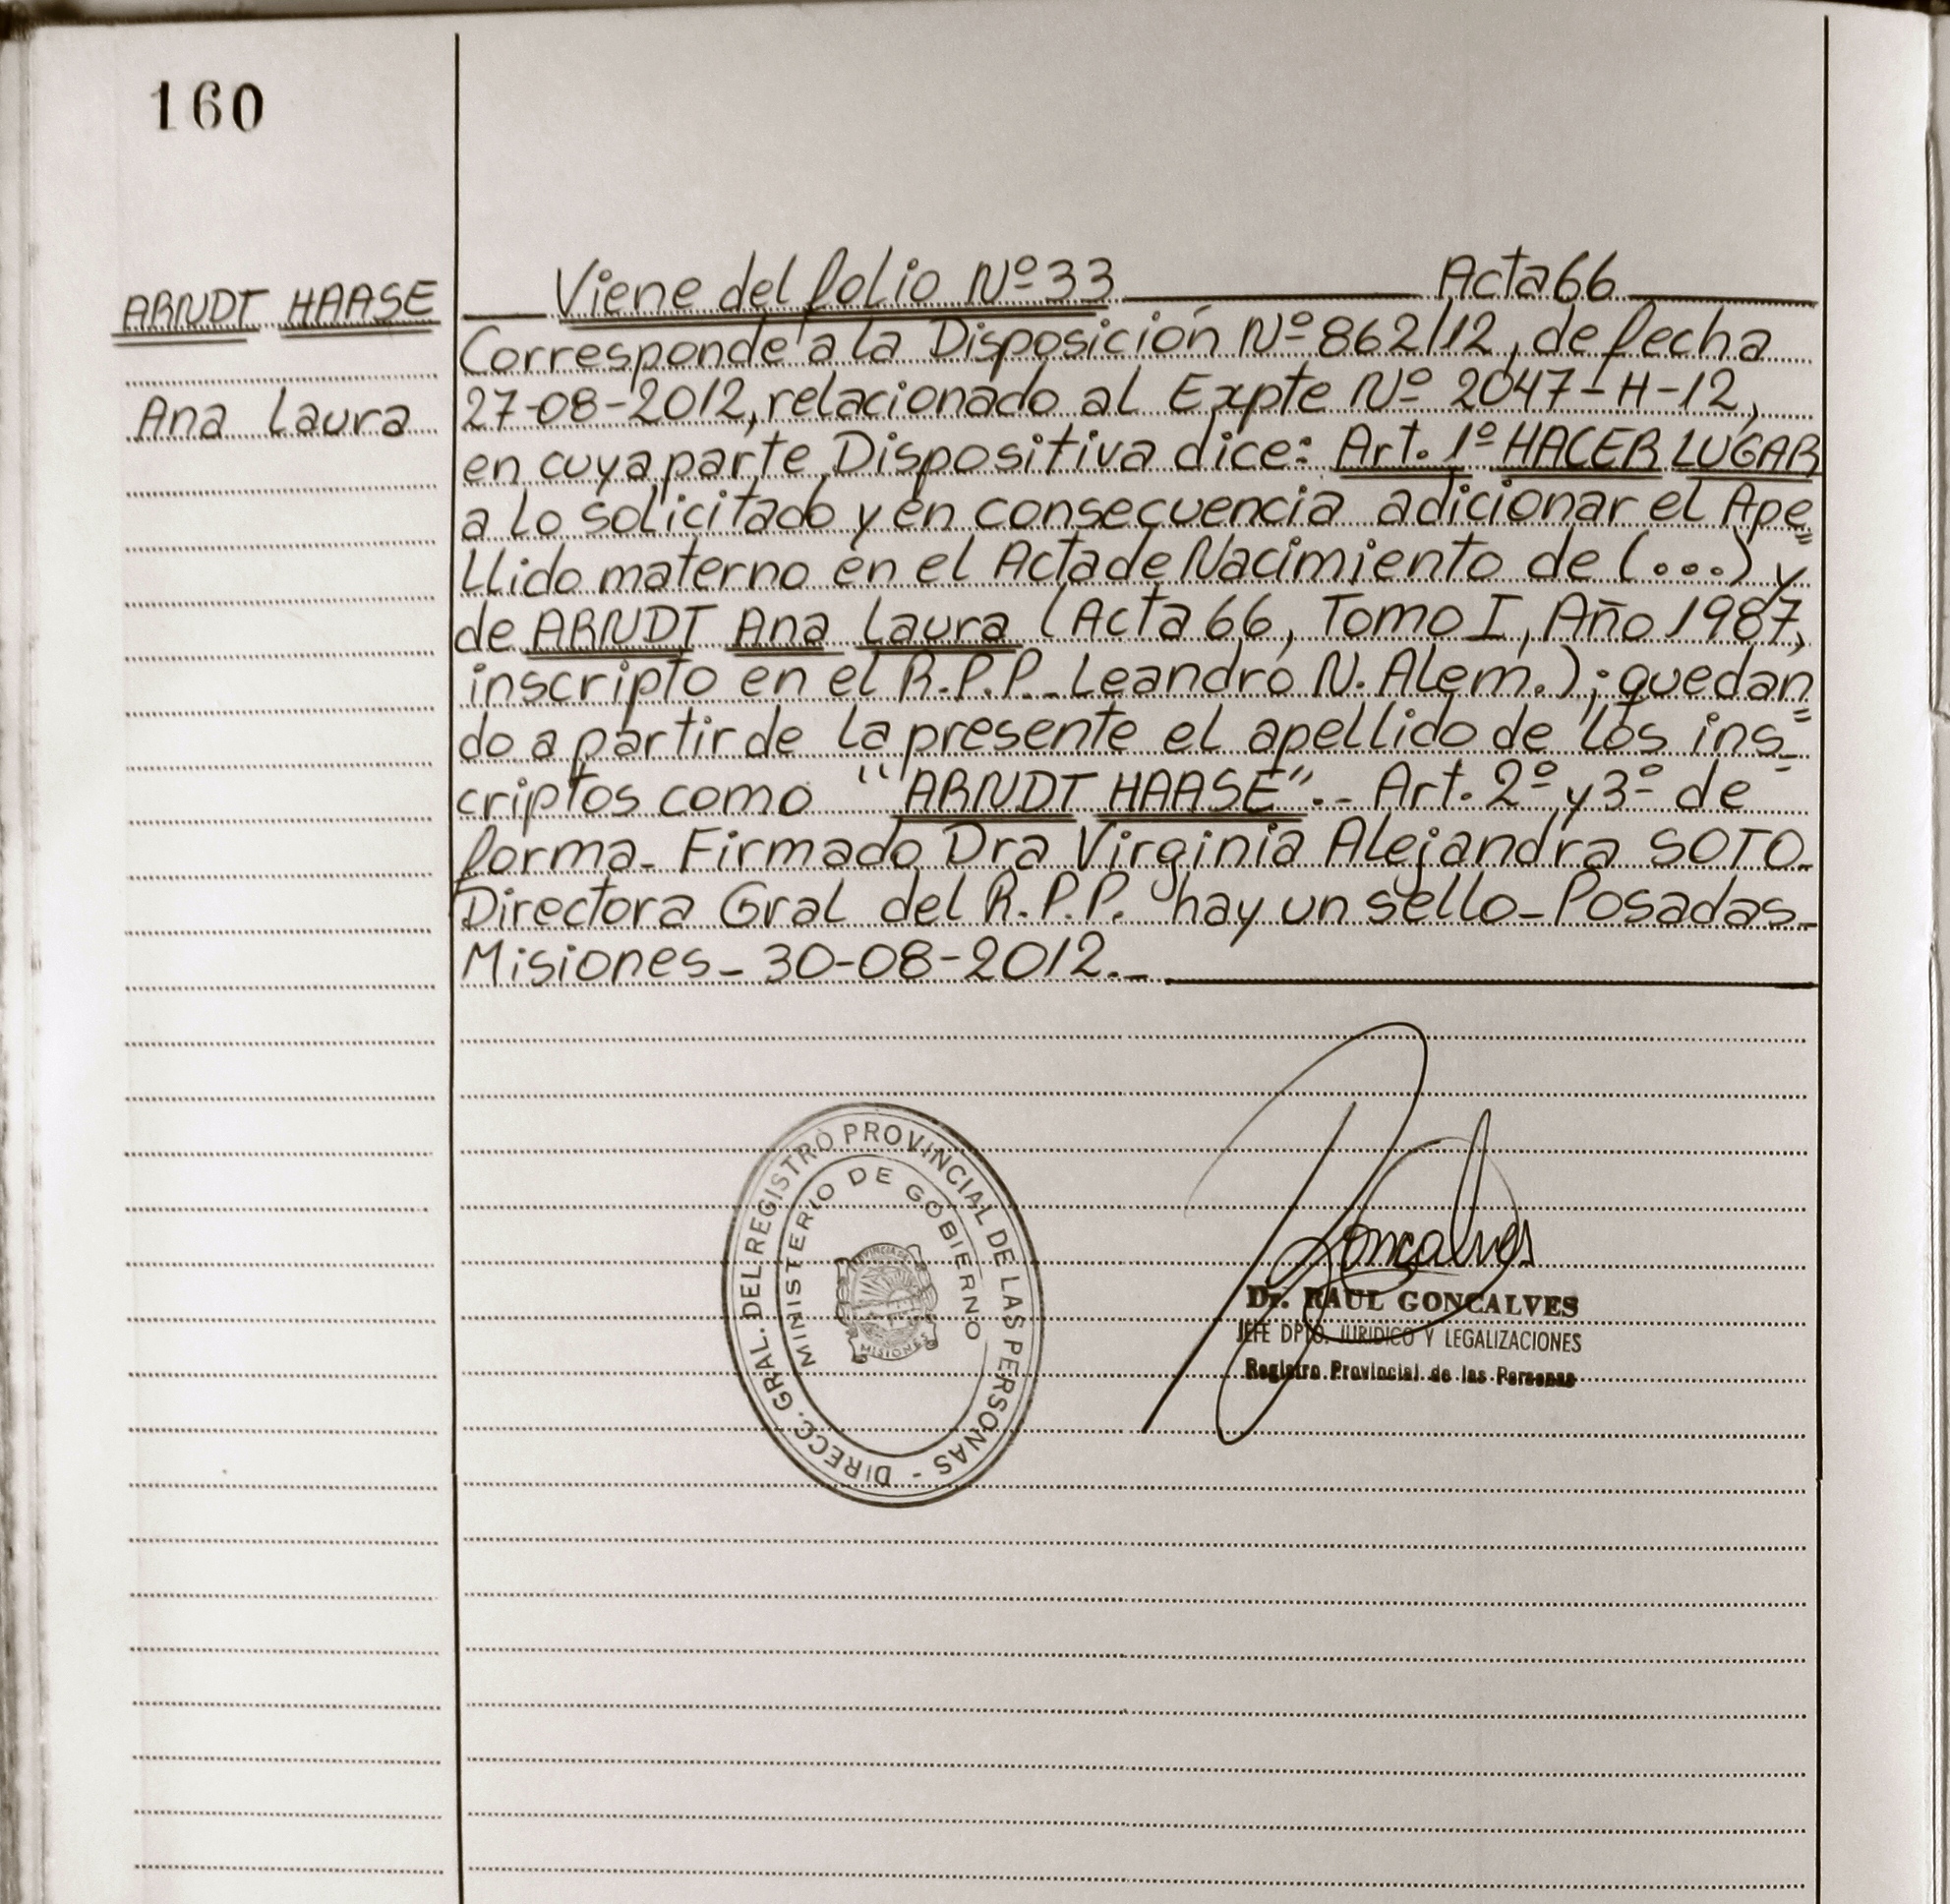 160
ARNDT HAASE
Ana Laura
Viene del folio Nº 33 Acta 66
Corresponde a la Disposición Nº 862/12, de fecha
27-08-2012, relacionado al Expte Nº 2047-H-12,
en cuya parte Dispositiva dice: Art. 1º HACER LUGAR
a lo solicitado y en consecuencia adicionar el Ape=
llido materno en el Acta de Nacimiento de (...) y
de ARNDT Ana Laura (Acta 66, Tomo I, Año 1987,
inscripto en el R.P.P. Leandro N. Alem.); quedan=
do a partir de la presente el apellido de los ins=
criptos como "ARNDT HAASE".- Art. 2º y 3º de
forma_ Firmado Dra Virginia Alejandra SOTO_
Directora Gral del R.P.P. hay un sello_ Posadas_
Misiones_ 30-08-2012._
DIRECC. GRAL. DEL REGISTRO PROVINCIAL DE LAS PERSONAS -
MINISTERIO DE GOBIERNO
PROVINCIA DE
MISIONES
Goncalves
Dr. RAUL GONCALVES
JEFE DPTO. JURIDICO Y LEGALIZACIONES
Registro Provincial de las Personas